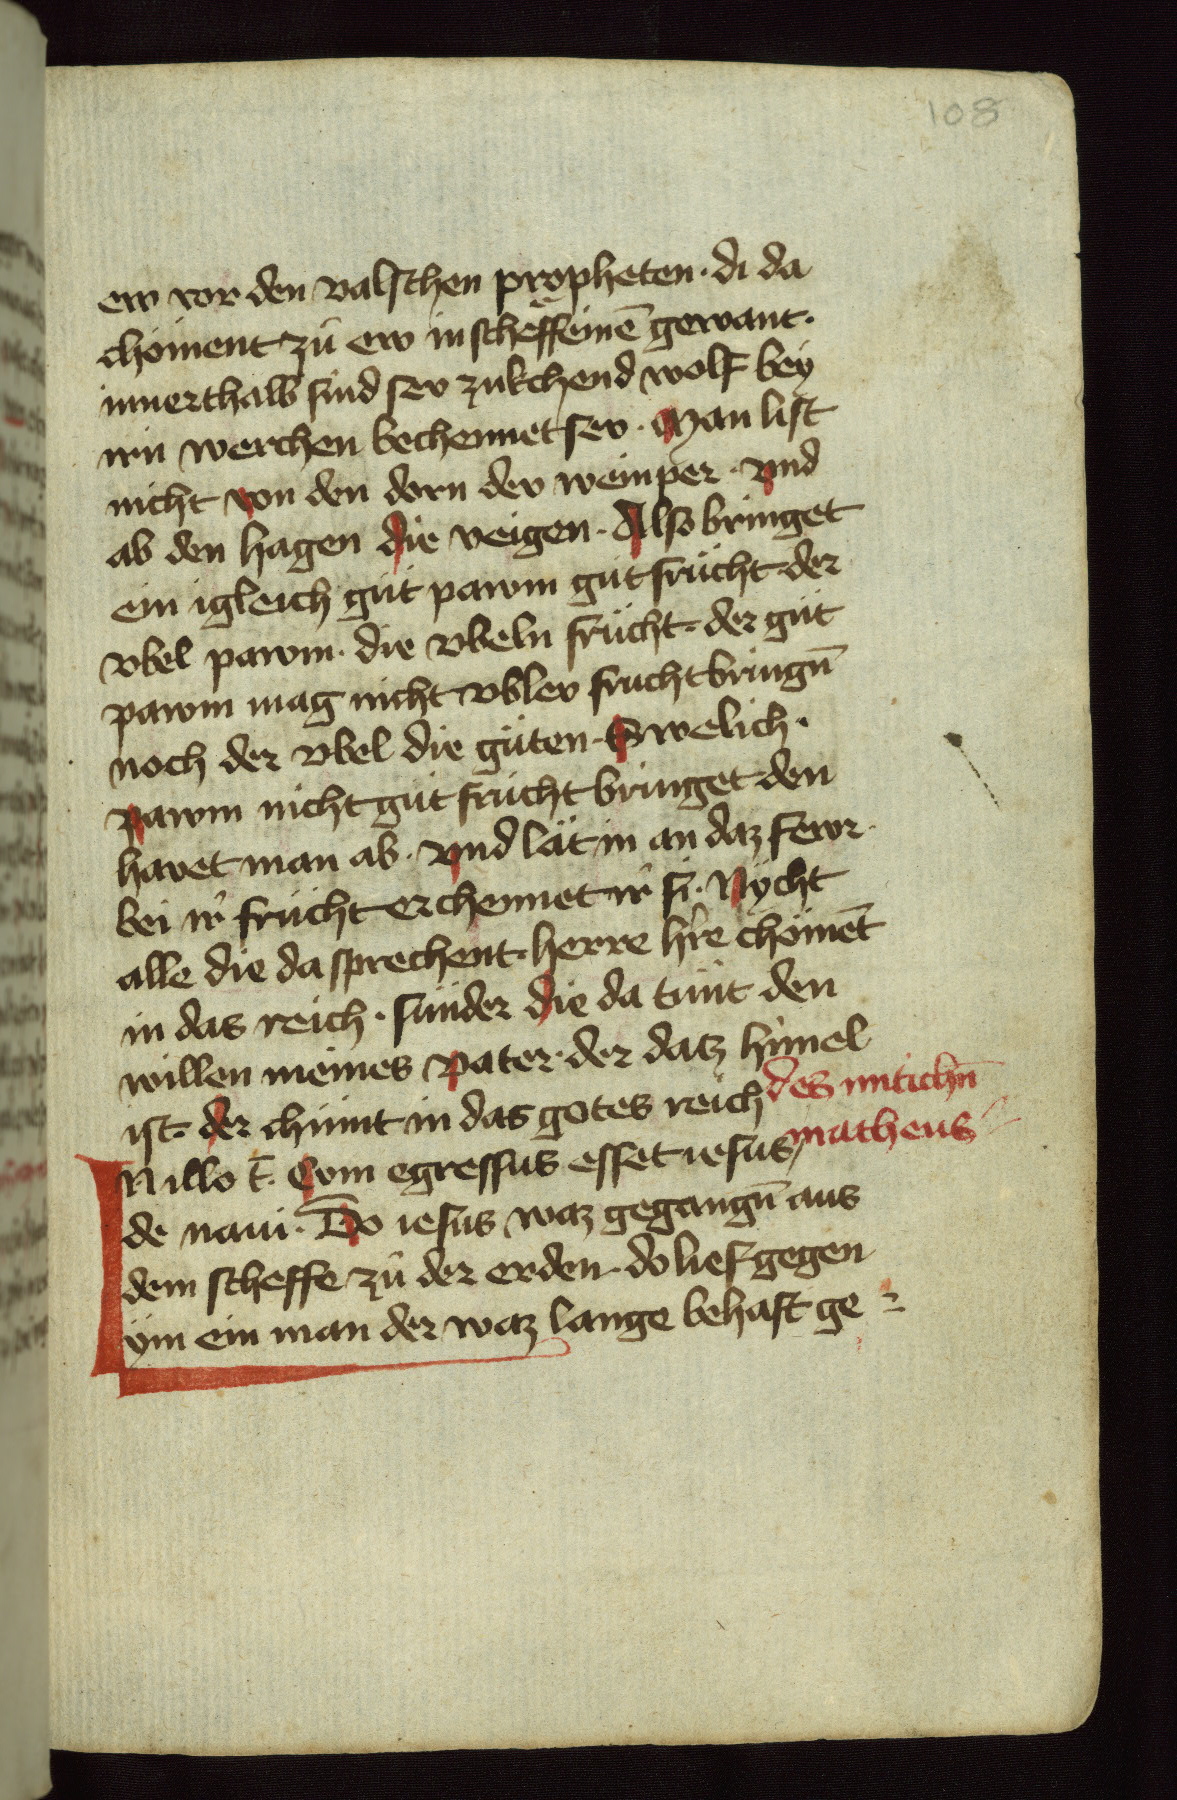 108
ew vor den valschen propheten · di da
chöment zů ew in scheffeinē gewant ·
innerthalb sind sev zukchend wolf bey
irn werchen bechennet sev · Man list
nicht von den dorn dev weinper · vnd
ab den hagen die veigen · Also bringet
ein igleich güt pawm güt frücht · der
vbel pawm · die vbeln frücht · der güt
pawm mag nicht vblev frucht bringn̄
noch der vbel die güten · Swelich ·
pawm nicht güt frücht bringet den
havet man ab · vnd lät in an daz fewr ·
bei ir frücht erchennet ir si · Nÿcht
alle die da sprechent · herre hr̄e chömēt
in das reich · sünder die da tünt den
willen meines vater · der datz himel
ist · der chümt in das gotes reich des mitichn̄
In illo t̄ · Com egressus esset iesus matheus
de naui · Do iesus waz gegangn̄ aus
dem scheffe zů der erden · do lief gegen
ÿm ein man der waz lange behaft ge